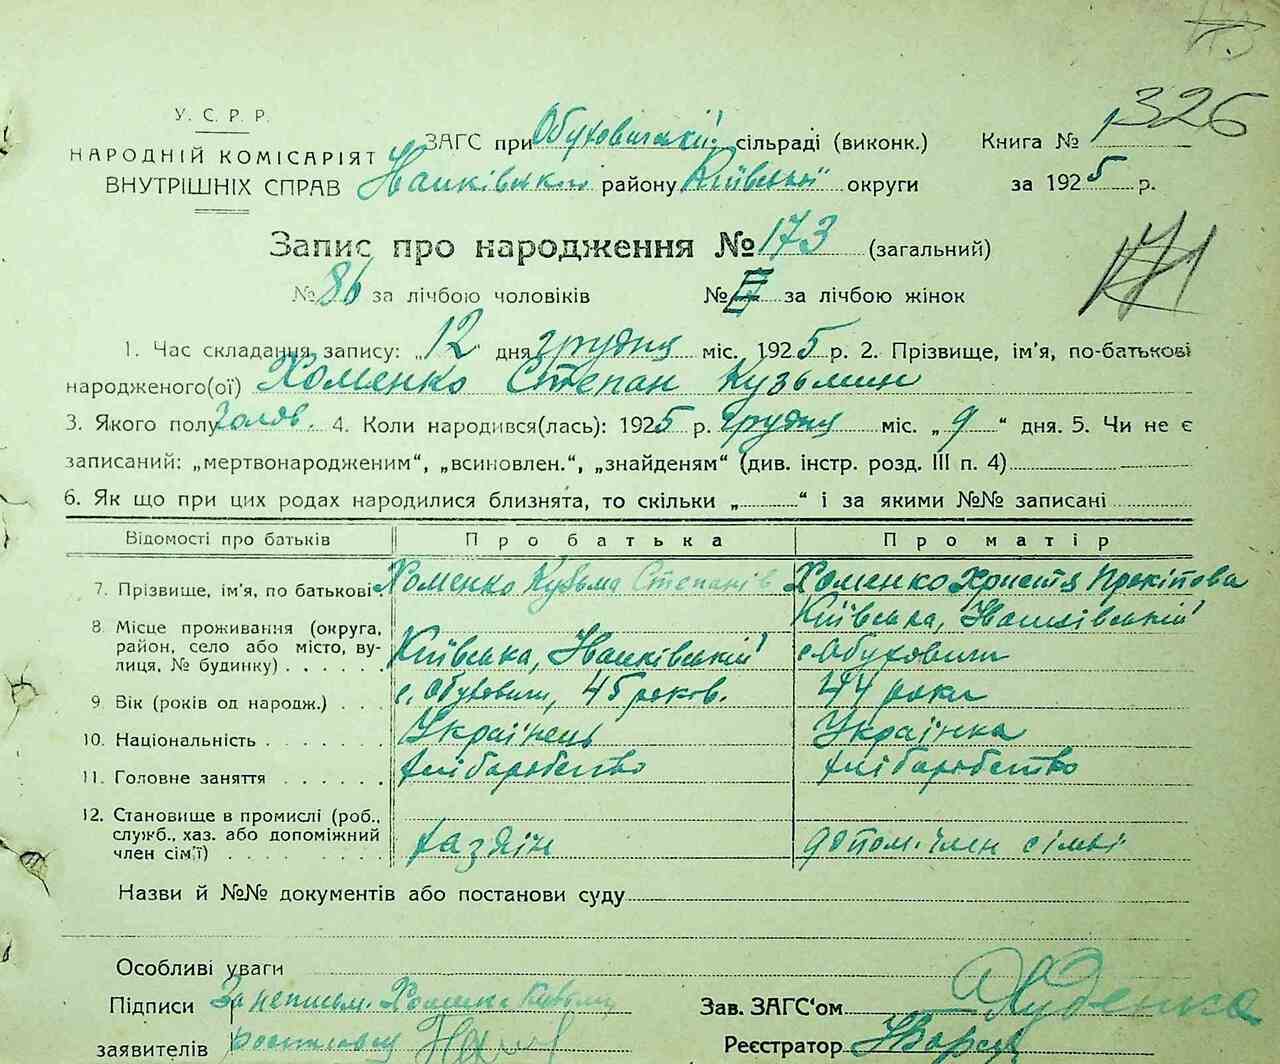 326
У. С. Р. Р.
НАРОДНІЙ КОМІСАРІЯТ
ВНУТРІШНІХ СПРАВ
ЗАГС при Обуховицькій сільраді (виконк.) Книга № 1
Іванківського району Київської округи за 1925 р.
Запис про народження № 173 (загальний)
171
№ 86 за лічбою чоловіків № за лічбою жінок
1. Час складання запису: „12" дня грудня міс. 1925 р. 2. Прізвище, ім'я, по-батькові
народженого(ої) Хоменко Степан Кузьмин
3. Якого полу чолов. 4. Коли народився(лась): 1925 р. грудня міс. „9" дня. 5. Чи не є
записаний: „мертвонародженим", „всиновлен.", „знайденям" (див. інстр. розд. III п. 4)
6. Як що при цих родах народилися близнята, то скільки „ " і за якими №№ записані
Відомості про батьків Про батька Про матір
7. Прізвище, ім'я, по батькові Хоменко Кузьма Степанів Хоменко Христя Прокіпова
8. Місце проживання (округа, район, село або місто, вулиця, № будинку) Київська, Іванківський с. Обуховичи Київська, Іванківський с. Обуховичи
9. Вік (років од народж.) 45 років. 44 роки
10. Національність Українець Українка
11. Головне заняття хліборобство хліборобство
12. Становище в промислі (роб., служб., хаз. або допоміжний член сім'ї) хазяїн допом. член сімьі
Назви й №№ документів або постанови суду
Особливі уваги
Підписи За неписьм. Хоменка Кузьму
заявителів росписався
Зав. ЗАГС'ом
Реєстратор